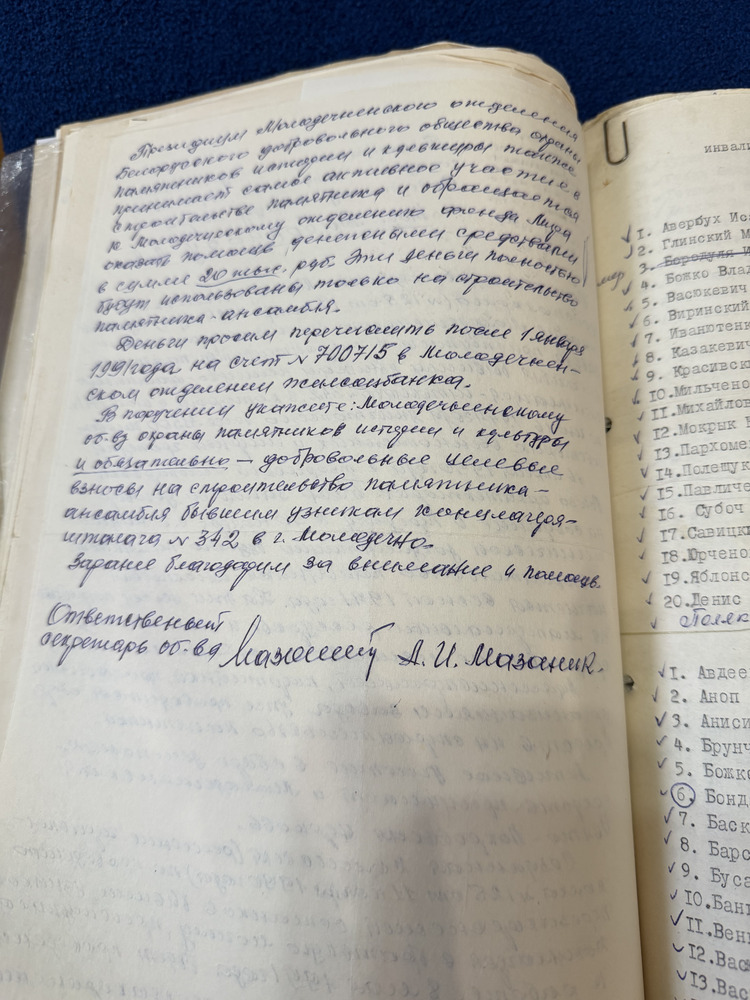 Президиум Молодечненского отделения
Белорусского добровольного общества охраны
памятников истории и культуры также
принимает самое активное участие в
строительстве памятника и обращается
к Молодечненскому отделению фонда Мира
оказать помощь денежными средствами
в сумме 20 тыс. руб. Эти деньги полностью
будут использованы только на строительство
памятника-ансамбля.
Деньги просим перечислить после 1 января
1991 года на счет №700715 в Молодечнен-
ском отделении жилсоцбанка.
В поручении укажите: Молодечненскому
об-ву охраны памятников истории и культуры
и обязательно — добровольные целевые
взносы на строительство памятника-
ансамбля бывшим узникам концлагеря-
шталага №342 в г. Молодечно.
Заранее благодарим за внимание и помощь.
Ответственный
секретарь об-ва А.И. Мазаник.
инвали
1. Авербух Иса
2. Глинский М
3. Бородуля И
4. Божко Влад
5. Васюкевич
6. Виринский
7. Иванютенк
8. Казакевич
9. Красивск
10.Мильчено
11.Михайлов
12.Мокрык Н
13.Пархоме
14.Полещук
15.Павличе
16. Субоч
17.Савицки
18.Юрчено
19.Яблонс
20.Денис
Поляк
1. Авдее
2. Аноп
3. Аниси
4. Брунч
5. Божко
6. Бонд
7. Баск
8. Барс
9. Буса
10.Бан
11.Вени
12.Вас
13.Вас